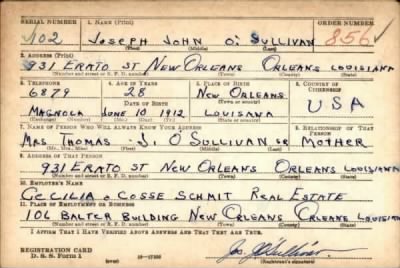 SERIAL NUMBER 1. NAME (Print) ORDER NUMBER
102 JOSEPH JOHN O'SULLIVAN 856
(First) (Middle) (Last)
2. ADDRESS (Print)
931 ERATO ST NEW ORLEANS ORLEANS LOUISIANA
(Number and street or R. F. D. number) (Town) (County) (State)
3. TELEPHONE 4. AGE IN YEARS 5. PLACE OF BIRTH 6. COUNTRY OF CITIZENSHIP
6879 28 NEW ORLEANS
DATE OF BIRTH (Town or county) USA
MAGNOLA JUNE 10 1912 LOUISANA
(Exchange) (Number) (Mo.) (Day) (Yr.) (State or country)
7. NAME OF PERSON WHO WILL ALWAYS KNOW YOUR ADDRESS 8. RELATIONSHIP OF THAT PERSON
MRS THOMAS J. O'SULLIVAN SR MOTHER
(Mr., Mrs., Miss) (First) (Middle) (Last)
9. ADDRESS OF THAT PERSON
931 ERATO ST NEW ORLEANS ORLEANS LOUISIANA
(Number and street or R. F. D. number) (Town) (County) (State)
10. EMPLOYER'S NAME
CECILIA COSSE SCHMIT REAL ESTATE
11. PLACE OF EMPLOYMENT OR BUSINESS
106 BALTER BUILDING NEW ORLEANS ORLEANS LOUISIANA
(Number and street or R. F. D. number) (Town) (County) (State)
I AFFIRM THAT I HAVE VERIFIED ABOVE ANSWERS AND THAT THEY ARE TRUE.
REGISTRATION CARD
D. S. S. Form 1 (over) Jos J O'Sullivan
(Registrant's signature)